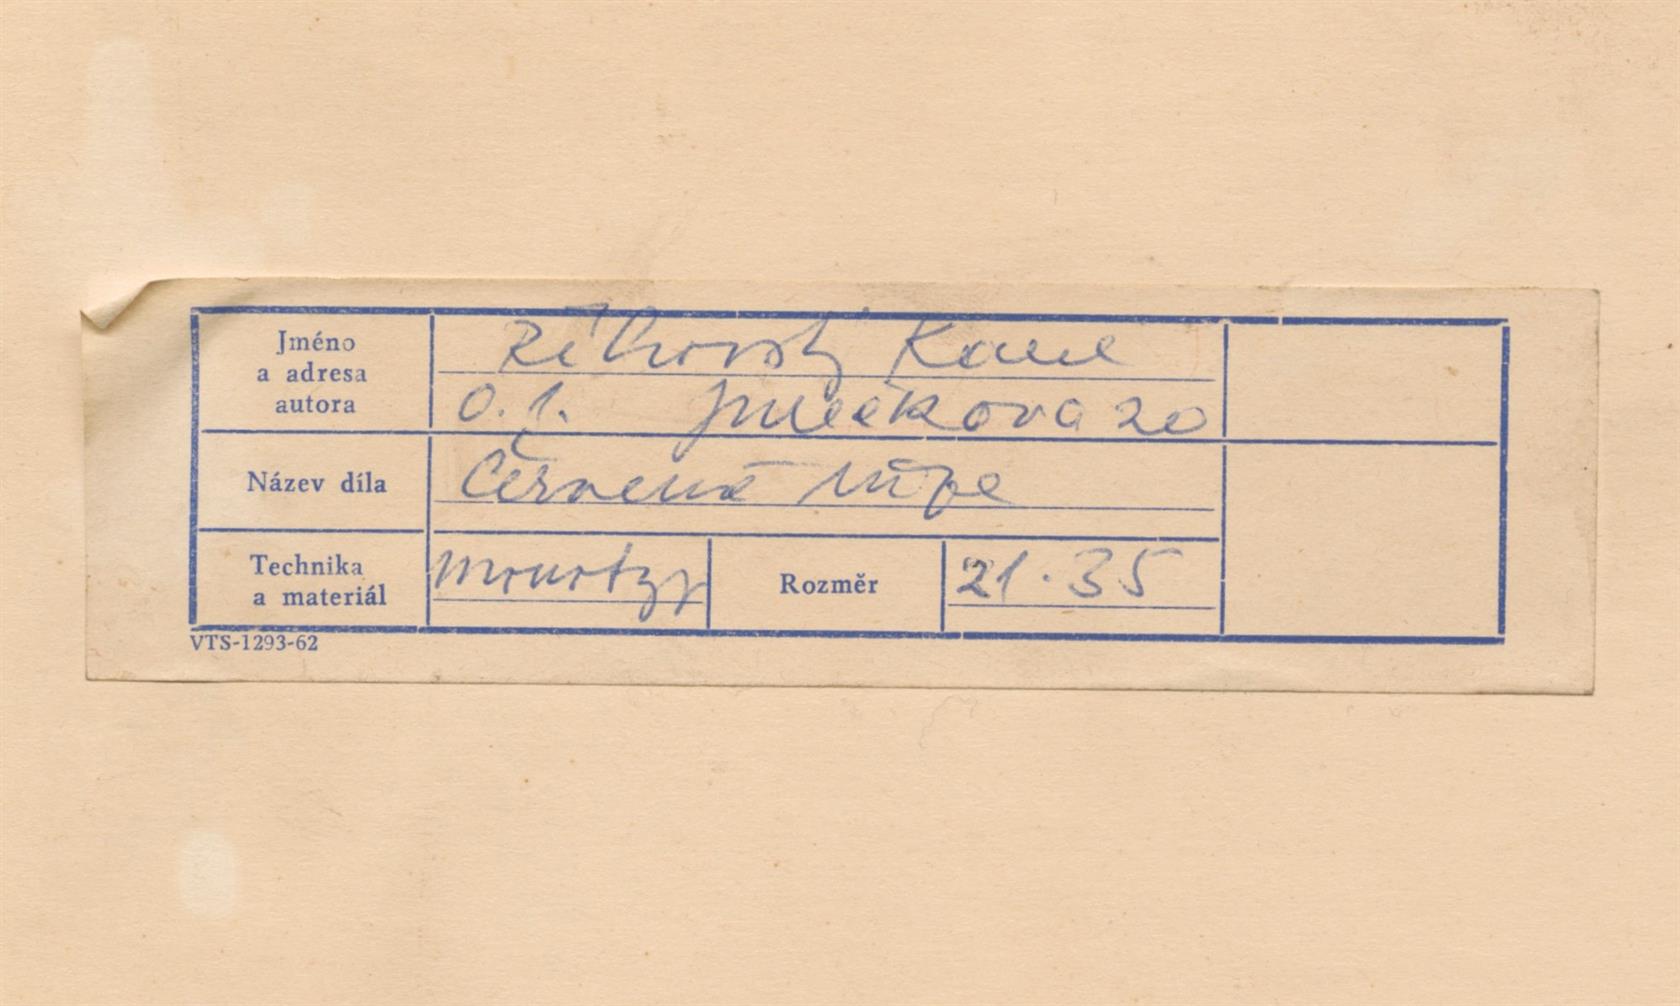 Jméno
a adresa
autora
Říhovský Karel
O. J. Jurečkova 20
Název díla
Červená růže
Technika
a materiál
monotyp
Rozměr
21 · 35
VTS-1293-62